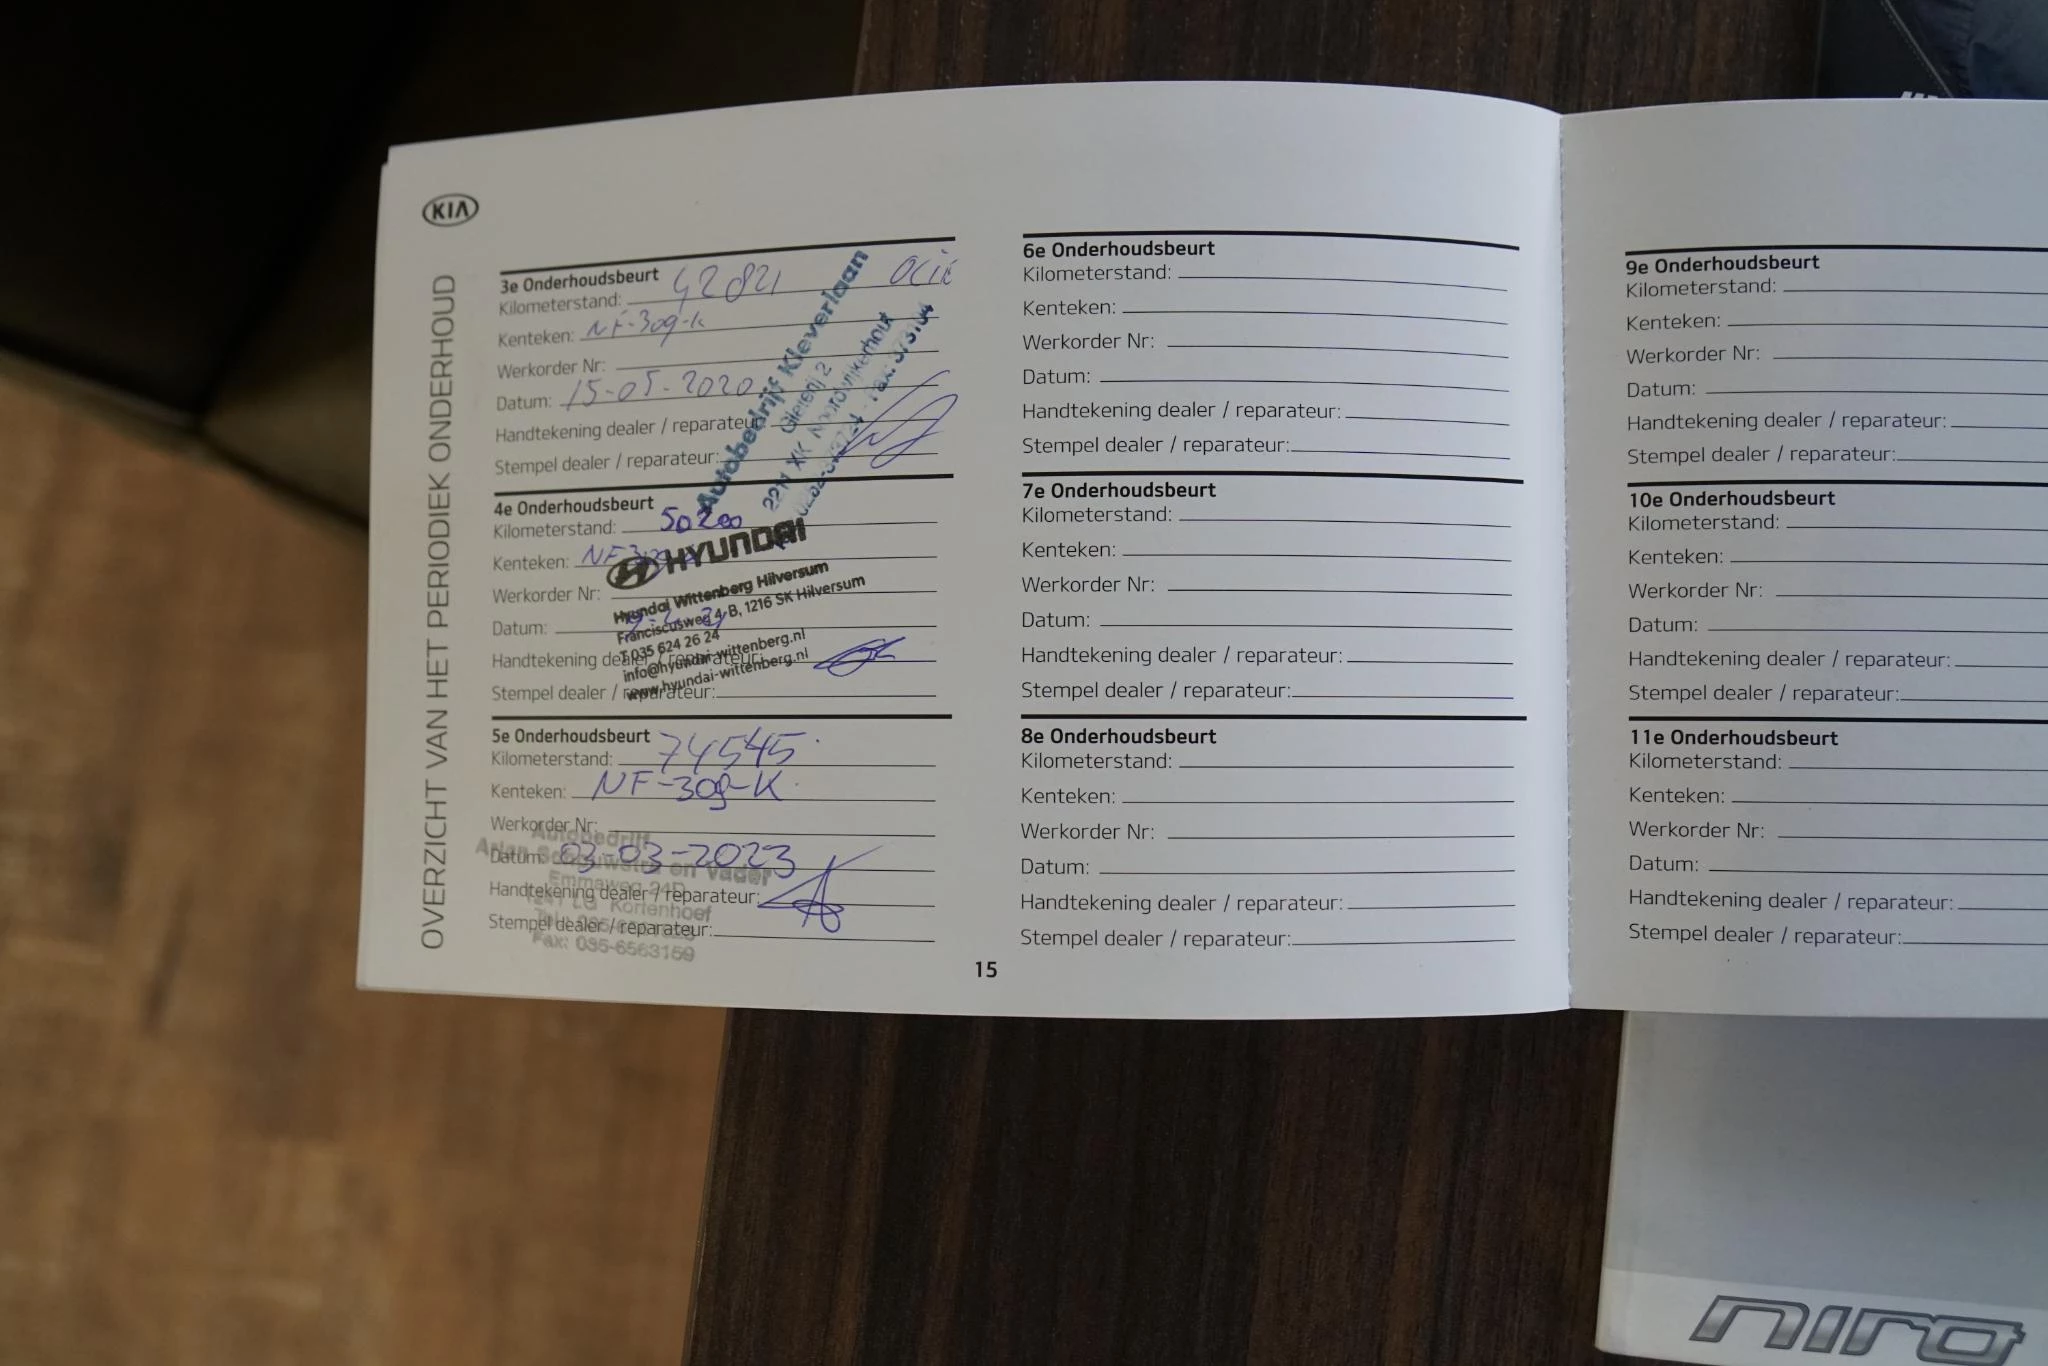 KIA
OVERZICHT VAN HET PERIODIEK ONDERHOUD
3e Onderhoudsbeurt
Kilometerstand: 42821 OLIE
Kenteken: NF-309-K
Werkorder Nr:
Datum: 15-05-2020
Handtekening dealer / reparateur:
Stempel dealer / reparateur:
Autobedrijf Kleverlaan
Gieterij 2
2211 XK Noordwijkerhout
Fax: 373104
4e Onderhoudsbeurt
Kilometerstand: 50200
Kenteken: NF309-K
Werkorder Nr:
Datum:
Handtekening dealer / reparateur:
Stempel dealer / reparateur:
HYUNDAI
Hyundai Wittenberg Hilversum
Franciscusweg 4-B, 1216 SK Hilversum
T 035 624 26 24
info@hyundai-wittenberg.nl
www.hyundai-wittenberg.nl
5e Onderhoudsbeurt
Kilometerstand: 74545
Kenteken: NF-309-K
Werkorder Nr:
Datum: 03-03-2023
Handtekening dealer / reparateur:
Stempel dealer / reparateur:
Autobedrijf
en Vader
Emmaweg 24D
1241 LG Kortenhoef
Fax: 035-6563159
6e Onderhoudsbeurt
Kilometerstand:
Kenteken:
Werkorder Nr:
Datum:
Handtekening dealer / reparateur:
Stempel dealer / reparateur:
7e Onderhoudsbeurt
Kilometerstand:
Kenteken:
Werkorder Nr:
Datum:
Handtekening dealer / reparateur:
Stempel dealer / reparateur:
8e Onderhoudsbeurt
Kilometerstand:
Kenteken:
Werkorder Nr:
Datum:
Handtekening dealer / reparateur:
Stempel dealer / reparateur:
15
9e Onderhoudsbeurt
Kilometerstand:
Kenteken:
Werkorder Nr:
Datum:
Handtekening dealer / reparateur:
Stempel dealer / reparateur:
10e Onderhoudsbeurt
Kilometerstand:
Kenteken:
Werkorder Nr:
Datum:
Handtekening dealer / reparateur:
Stempel dealer / reparateur:
11e Onderhoudsbeurt
Kilometerstand:
Kenteken:
Werkorder Nr:
Datum:
Handtekening dealer / reparateur:
Stempel dealer / reparateur:
niro